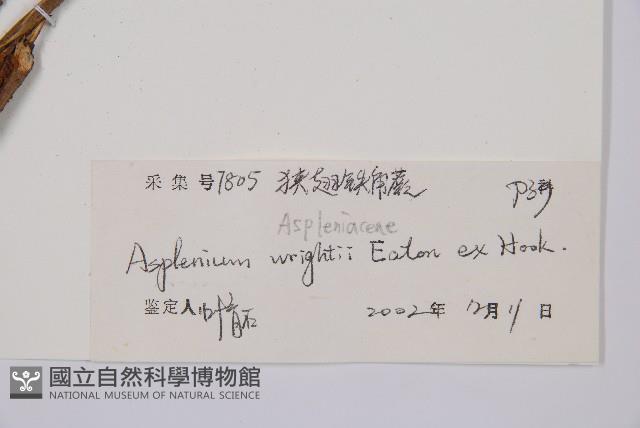 采集号 7805 狭翅铁角蕨
Aspleniaceae
Asplenium wrightii Eaton ex Hook.
鉴定人:
2002年 12月11日
國立自然科學博物館
NATIONAL MUSEUM OF NATURAL SCIENCE